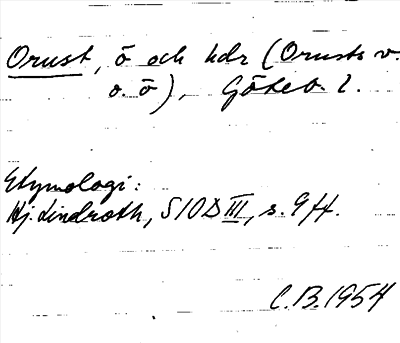 Orust, ö och hdr (Orusts v.
o. ö), Göteb. l.
Etymologi:
Hj. Lindroth, SIOD III, s. 9 ff.
C.B. 1954